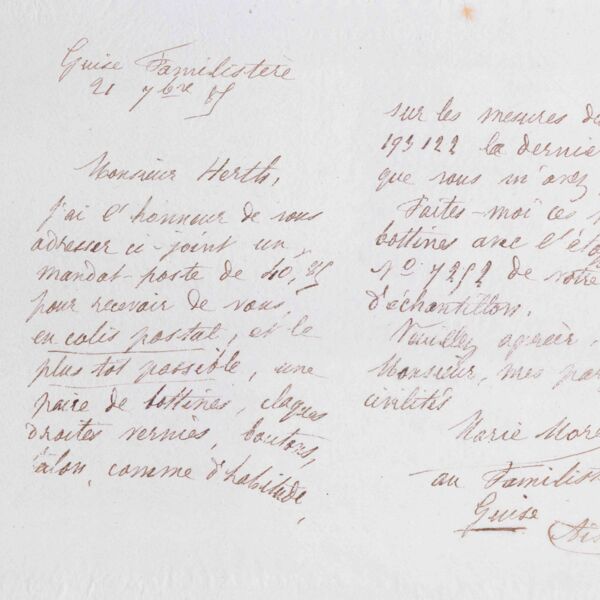 Guise Familistère
21 7bre 85
Monsieur Herth,
J'ai l'honneur de vous
adresser ci-joint un
mandat-poste de 40,85
pour recevoir de vous,
en colis postal, et le
plus tôt possible, une
paire de bottines, claques
droites vernies, boutons,
talon, comme d'habitude,
sur les mesures de
193122 la derniè
que vous m'avez
Faites-moi ces
bottines avec l'éto
No 7252 de votre
d'échantillon.
Veuillez agréer,
Monsieur, mes par
civilités
Marie More
au Familis
Guise
Ais